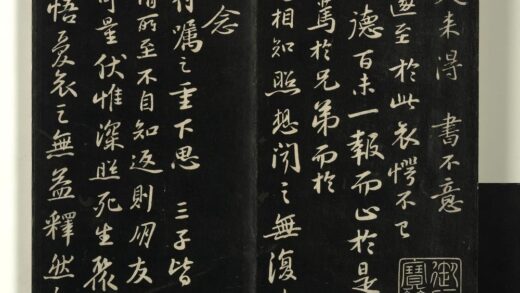 未得 書不意
遂至於此哀愕不已
德百未一報而止於是
篤於兄弟而於
相知照想聞之無復
念
付囑之重下思 三子皆
情所至不自知返則朋友
可量伏惟深照死生聚
悟憂哀之無益釋然